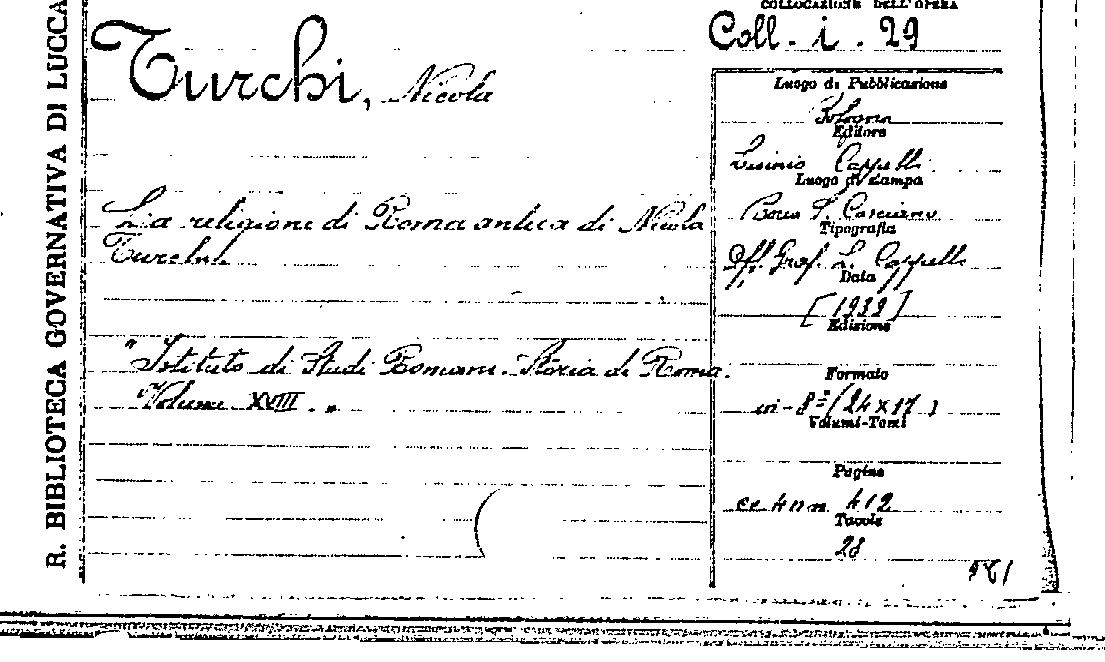 R. BIBLIOTECA GOVERNATIVA DI LUCCA
COLLOCAZIONE DELL'OPERA
Coll. i. 29
Turchi, Nicola
La religione di Roma antica di Nicola
Turchi.
"Istituto di Studi Romani. Storia di Roma.
Volume XVIII."
Luogo di Pubblicazione
Bologna
Editore
Licinio Cappelli
Luogo di Stampa
Rocca S. Casciano
Tipografia
Off. Graf. L. Cappelli
Data
[1939]
Edizione
Formato
in-8° (24 x 17)
Volumi-Tomi
Pagine
cc 4 n n 412
Tavole
28